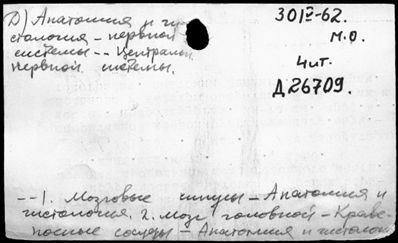 Д) Анатомия и ги-
стология - нервной
системы -- Центральн.
нервной системы.
30IV-62.
М.О.
Чит.
Д26709.
--1. Мозговые синусы - Анатомия и
гистология. 2. Мозг головной - Крове-
носные сосуды - Анатомия и гистология